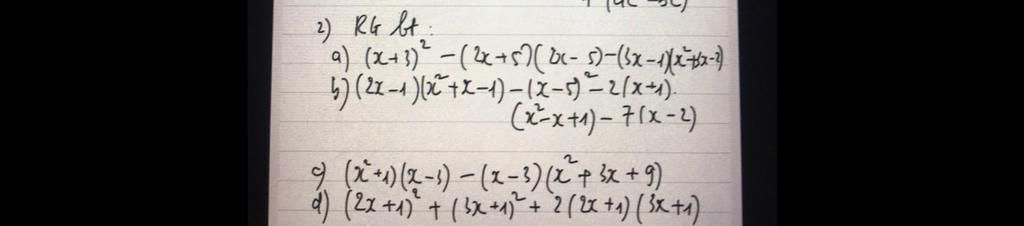 2) RG bt :
a) (x+3)² - (2x+5)(2x-5)-(3x-1)(x²+3x-2)
b) (2x-1)(x²+x-1)-(x-5)²-2(x+1).
(x²-x+1)-7(x-2)
c) (x²+1)(x-3)-(x-3)(x²+3x+9)
d) (2x+1)²+(3x+1)²+2(2x+1)(3x+1)